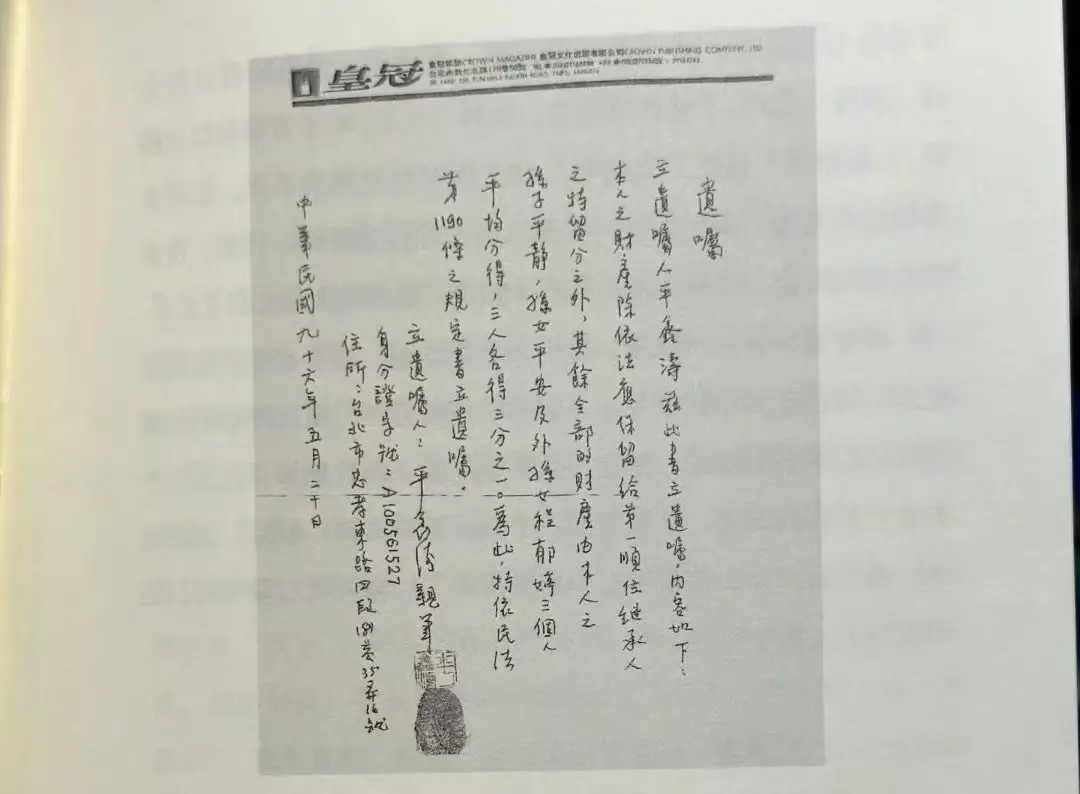 皇冠
皇冠雜誌CROWN MAGAZINE 皇冠文化出版有限公司CROWN PUBLISHING COMPANY, LTD.
遺囑
立遺囑人平鑫濤茲此書立遺囑,內容如下:
本人之財產除依法應保留給第一順位繼承人
之特留分之外,其餘全部的財產由本人之
孫子平靜,孫女平安及外孫女程郁婷三個人
平均分得,三人各得三分之一。為此,特依民法
第1190條之規定書立遺囑。
立遺囑人:平鑫濤親筆
身分證字號:A100561527
住所:台北市忠孝東路四段
中華民國九十六年五月二十日